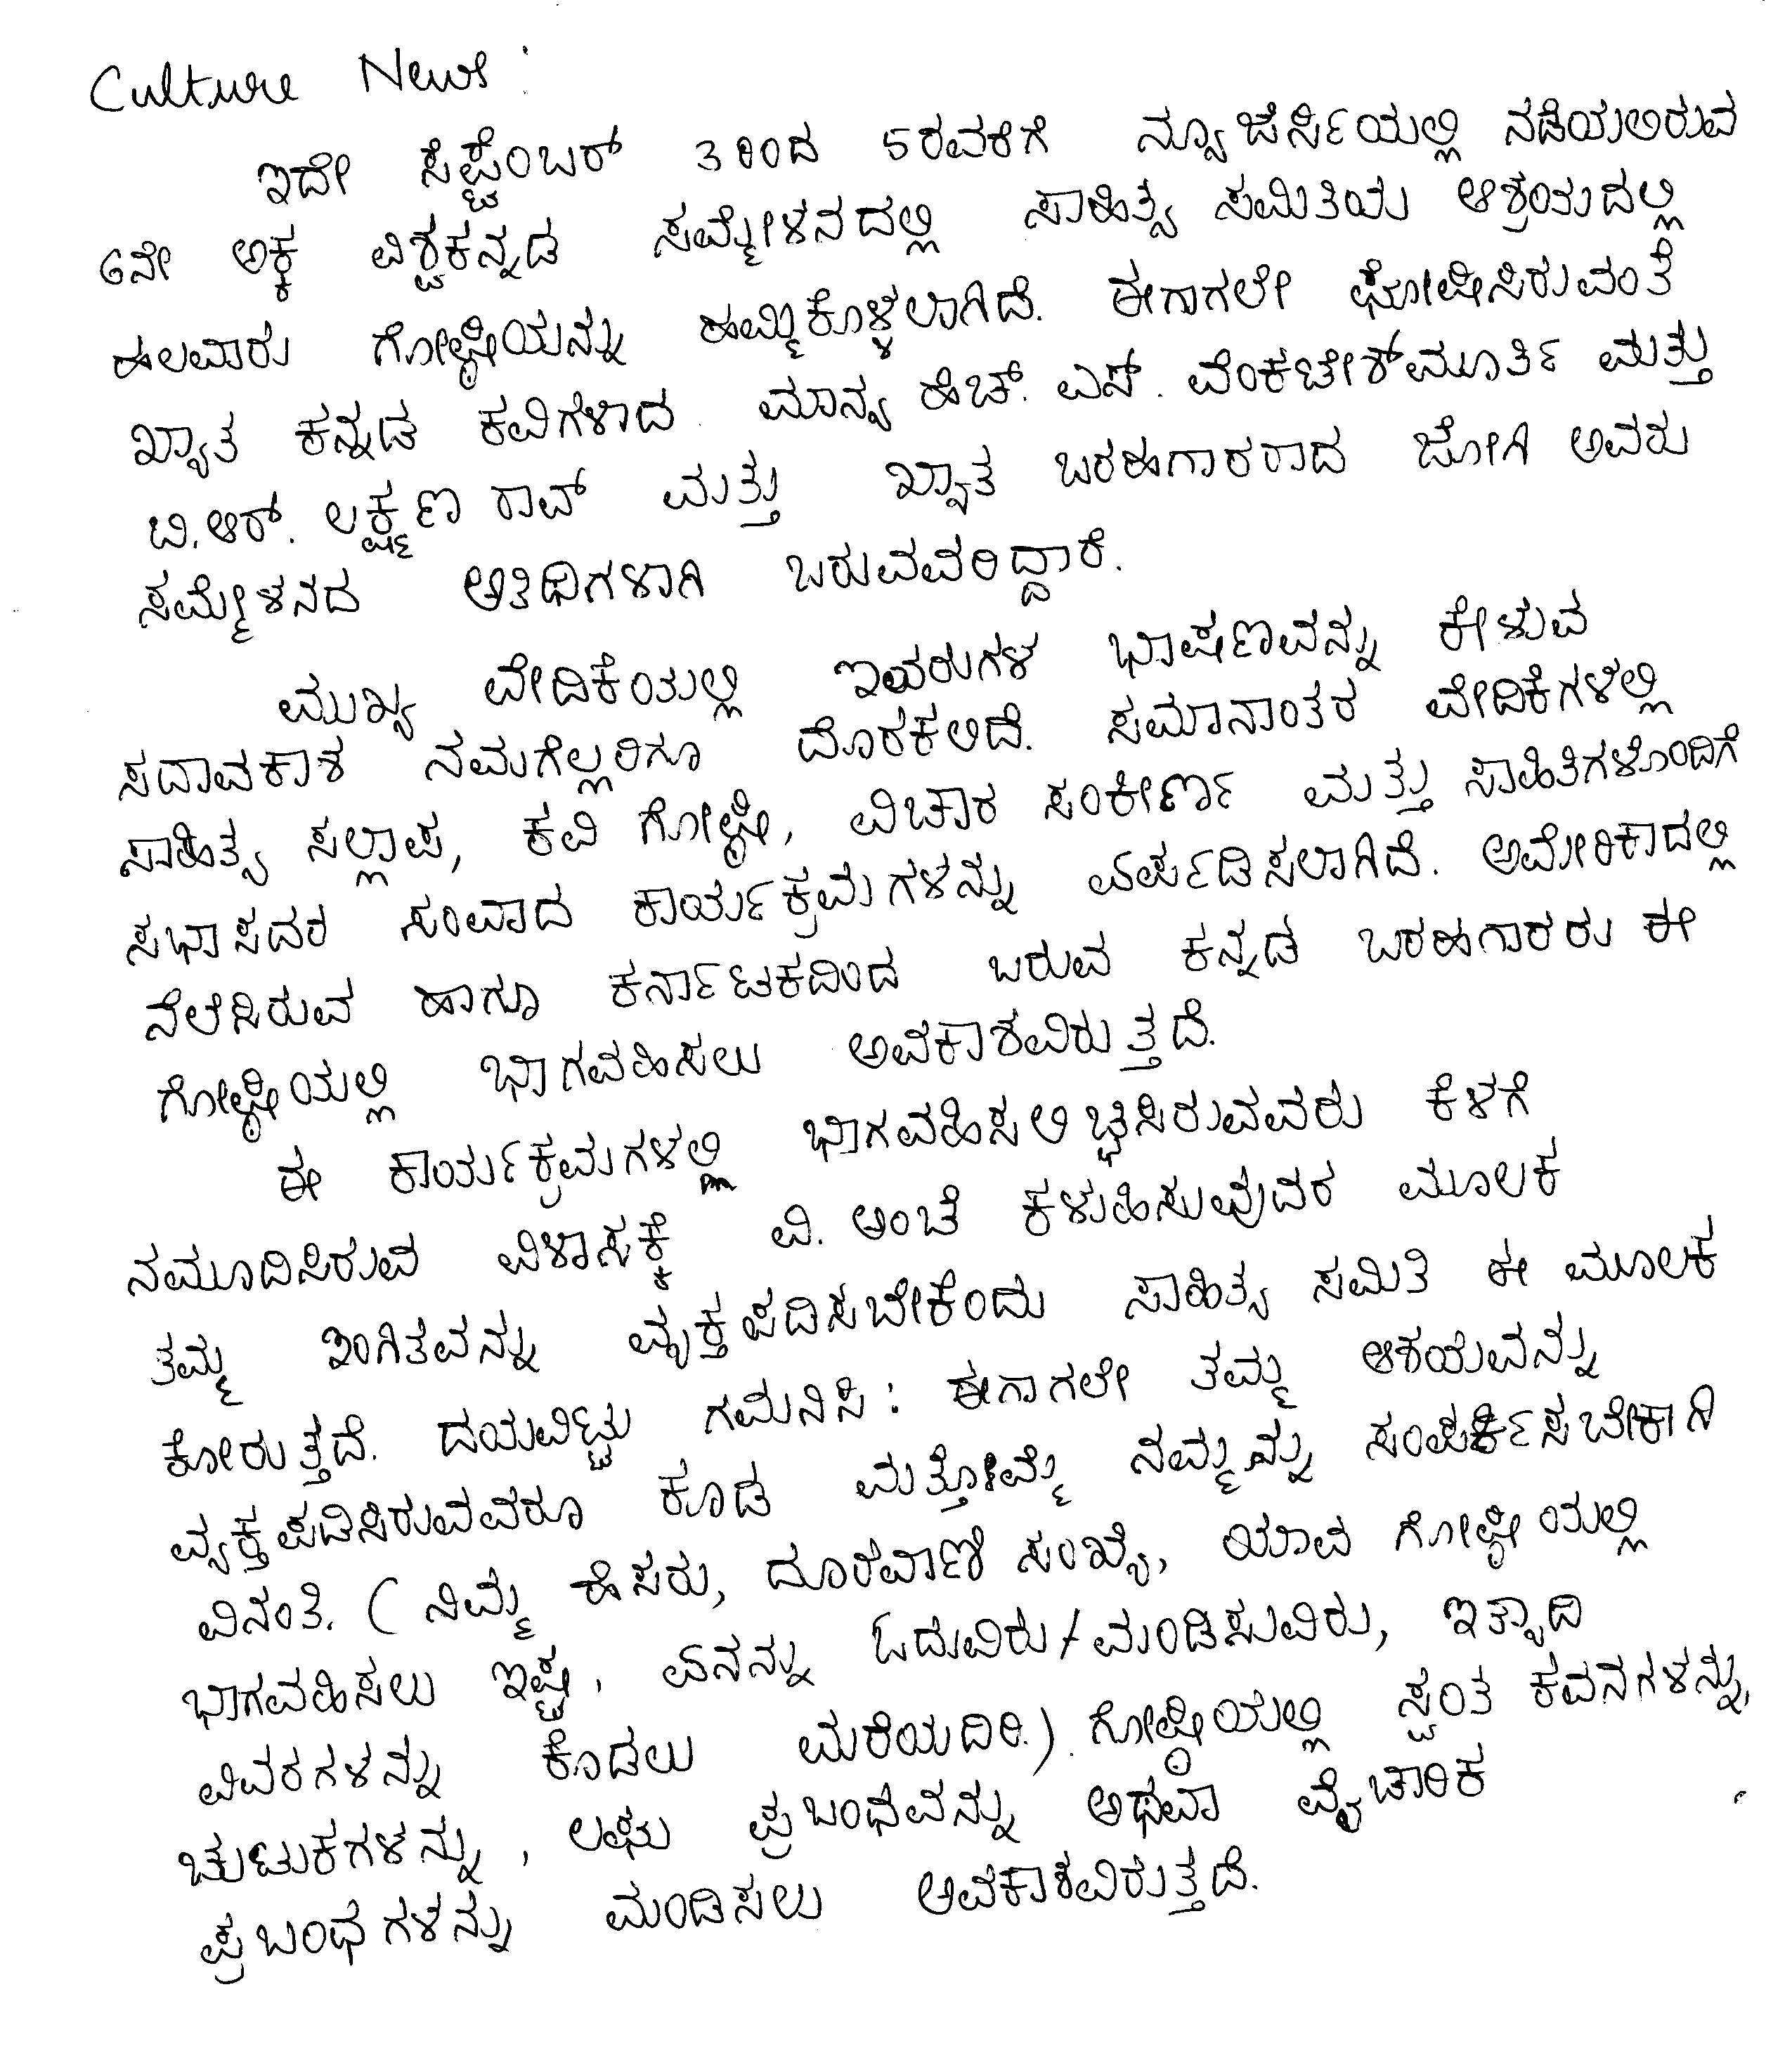 Culture News :
ಇದೇ ಸೆಪ್ಟೆಂಬರ್ 3ರಿಂದ 5ರವರೆಗೆ ನ್ಯೂಜೆರ್ಸಿಯಲ್ಲಿ ನಡೆಯಲಿರುವ
6ನೇ ಅಕ್ಕ ವಿಶ್ವಕನ್ನಡ ಸಮ್ಮೇಳನದಲ್ಲಿ ಸಾಹಿತ್ಯ ಸಮಿತಿಯ ಆಶ್ರಯದಲ್ಲಿ
ಹಲವಾರು ಗೋಷ್ಠಿಯನ್ನು ಹಮ್ಮಿಕೊಳ್ಳಲಾಗಿದೆ. ಈಗಾಗಲೇ ಘೋಷಿಸಿರುವಂತೆ
ಖ್ಯಾತ ಕನ್ನಡ ಕವಿಗಳಾದ ಮಾನ್ಯ ಹೆಚ್. ಎಸ್. ವೆಂಕಟೇಶ್‌ಮೂರ್ತಿ ಮತ್ತು
ಬಿ.ಆರ್. ಲಕ್ಷ್ಮಣ ರಾವ್ ಮತ್ತು ಖ್ಯಾತ ಬರಹಗಾರರಾದ ಜೋಗಿ ಅವರು
ಸಮ್ಮೇಳನದ ಅತಿಥಿಗಳಾಗಿ ಬರುವವರಿದ್ದಾರೆ.
ಮುಖ್ಯ ವೇದಿಕೆಯಲ್ಲಿ ಇವರುಗಳ ಭಾಷಣವನ್ನು ಕೇಳುವ
ಸದಾವಕಾಶ ನಮಗೆಲ್ಲರಿಗೂ ದೊರಕಲಿದೆ. ಸಮಾನಾಂತರ ವೇದಿಕೆಗಳಲ್ಲಿ
ಸಾಹಿತ್ಯ ಸಲ್ಲಾಪ, ಕವಿ ಗೋಷ್ಠಿ, ವಿಚಾರ ಸಂಕೀರ್ಣ ಮತ್ತು ಸಾಹಿತಿಗಳೊಂದಿಗೆ
ಸಭಾಸದರ ಸಂವಾದ ಕಾರ್ಯಕ್ರಮಗಳನ್ನು ಏರ್ಪಡಿಸಲಾಗಿದೆ. ಅಮೇರಿಕಾದಲ್ಲಿ
ನೆಲೆಸಿರುವ ಹಾಗೂ ಕರ್ನಾಟಕದಿಂದ ಬರುವ ಕನ್ನಡ ಬರಹಗಾರರು ಈ
ಗೋಷ್ಠಿಯಲ್ಲಿ ಭಾಗವಹಿಸಲು ಅವಕಾಶವಿರುತ್ತದೆ.
ಈ ಕಾರ್ಯಕ್ರಮಗಳಲ್ಲಿ ಭಾಗವಹಿಸಲಿಚ್ಛಿಸಿರುವವರು ಕೆಳಗೆ
ನಮೂದಿಸಿರುವ ವಿಳಾಸಕ್ಕೆ ವಿ. ಅಂಚೆ ಕಳುಹಿಸುವುದರ ಮೂಲಕ
ತಮ್ಮ ಇಂಗಿತವನ್ನು ವ್ಯಕ್ತಪಡಿಸಬೇಕೆಂದು ಸಾಹಿತ್ಯ ಸಮಿತಿ ಈ ಮೂಲಕ
ಕೋರುತ್ತದೆ. ದಯವಿಟ್ಟು ಗಮನಿಸಿ : ಈಗಾಗಲೇ ತಮ್ಮ ಆಶಯವನ್ನು
ವ್ಯಕ್ತಪಡಿಸಿರುವವರೂ ಕೂಡ ಮತ್ತೊಮ್ಮೆ ನಮ್ಮನ್ನು ಸಂಪರ್ಕಿಸಬೇಕಾಗಿ
ವಿನಂತಿ. ( ನಿಮ್ಮ ಹೆಸರು, ದೂರವಾಣಿ ಸಂಖ್ಯೆ, ಯಾವ ಗೋಷ್ಠಿಯಲ್ಲಿ
ಭಾಗವಹಿಸಲು ಇಷ್ಟ, ಏನನ್ನು ಓದುವಿರು/ಮಂಡಿಸುವಿರು, ಇತ್ಯಾದಿ
ವಿವರಗಳನ್ನು ಕೊಡಲು ಮರೆಯದಿರಿ.). ಗೋಷ್ಠಿಯಲ್ಲಿ ಸ್ವಂತ ಕವನಗಳನ್ನು,
ಚುಟುಕಗಳನ್ನು, ಲಘು ಪ್ರಬಂಧವನ್ನು ಅಥವಾ ವೈಚಾರಿಕ
ಪ್ರಬಂಧಗಳನ್ನು ಮಂಡಿಸಲು ಅವಕಾಶವಿರುತ್ತದೆ.